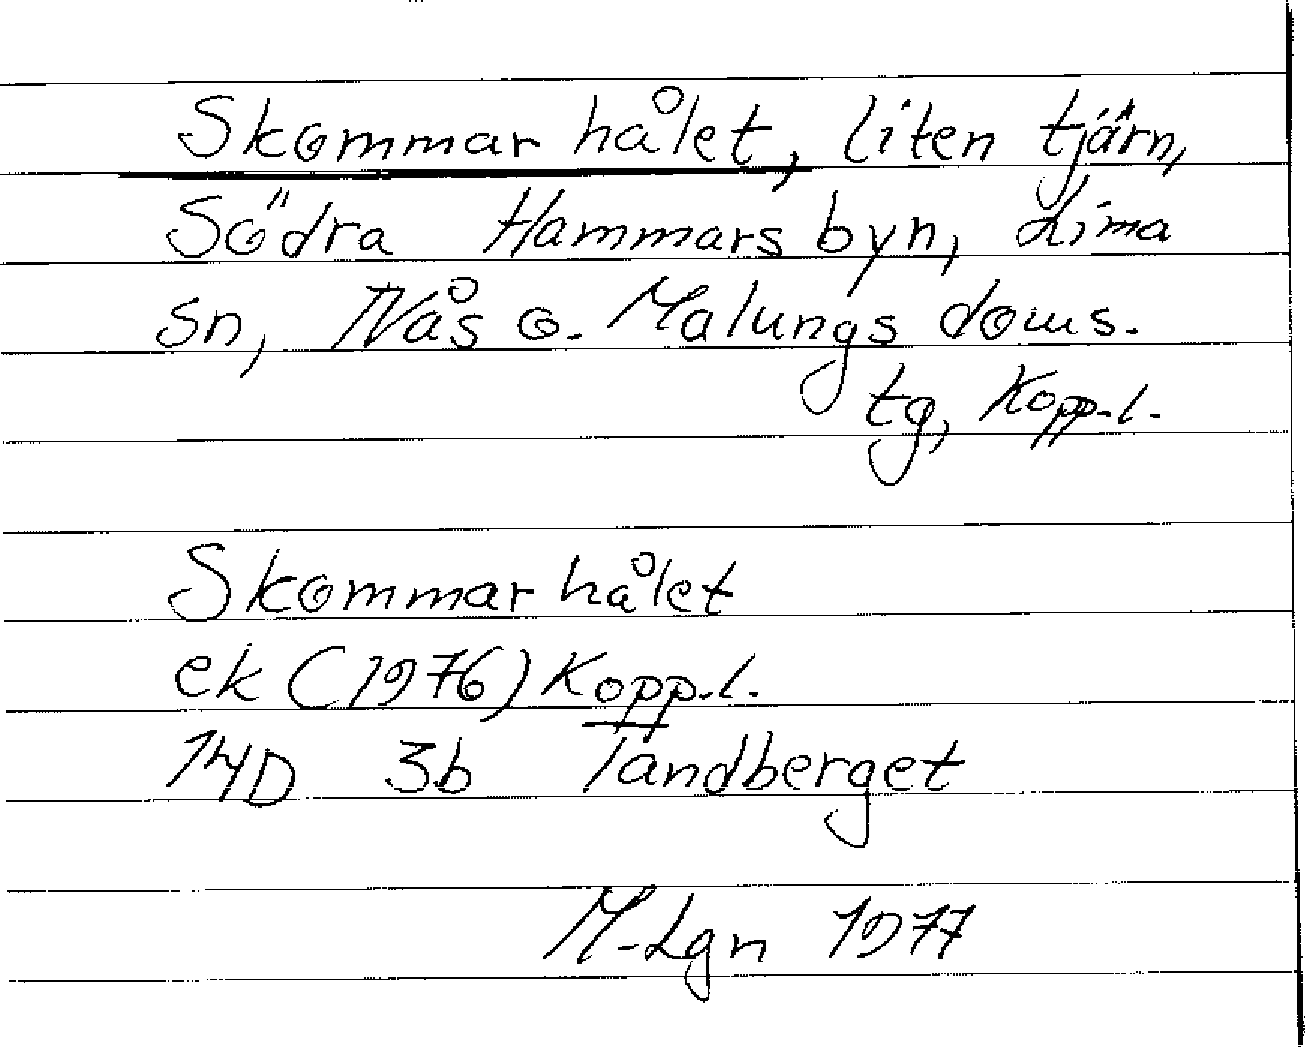 Skommarhålet, liten tjärn,
Södra Hammarsbyn, Lima
sn, Nås o. Malungs doms.
tg, Kopp.l.
Skommarhålet
ek (1976) Kopp.l.
14D 3b Tandberget
M-Lgn 1977